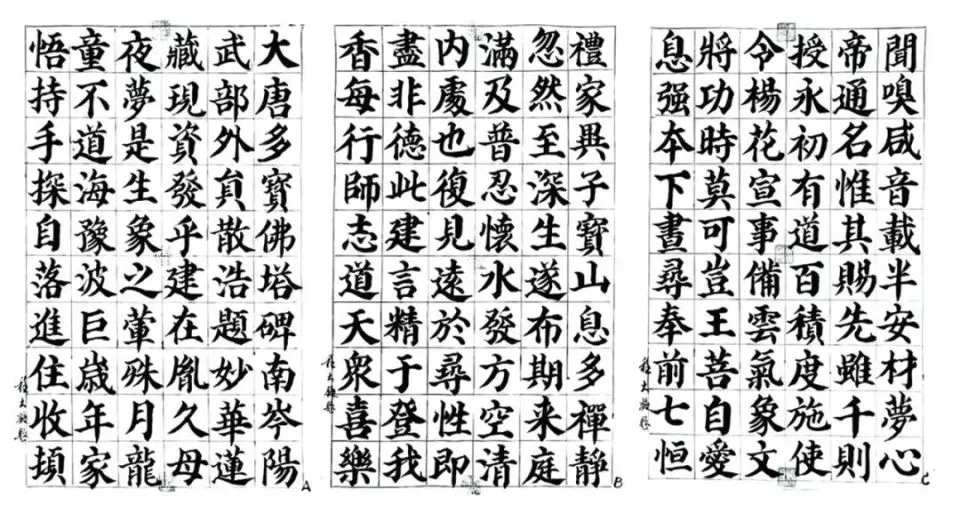 大唐多寶佛塔碑南岑陽
武部外貟散浩題妙華蓮
藏現資發乎建在胤久母
夜夢是生象之葷殊月龍
童不道海豫波巨歳年家
悟持手探自落進住收頃
A
禮家異子寶山息多禪靜
忽然至深生遂布期来庭
滿及普忍懷水發方空清
内處也復見遠於尋性即
盡非德此建言精于登我
香每行師志道天衆喜樂
B
聞嗅咸音載半安材夢心
帝通名惟其賜先雖千則
授永初有道百積度施使
令楊花宣事備雲氣象文
將功時莫可豈王菩自愛
息强本下晝尋奉前七恒
C